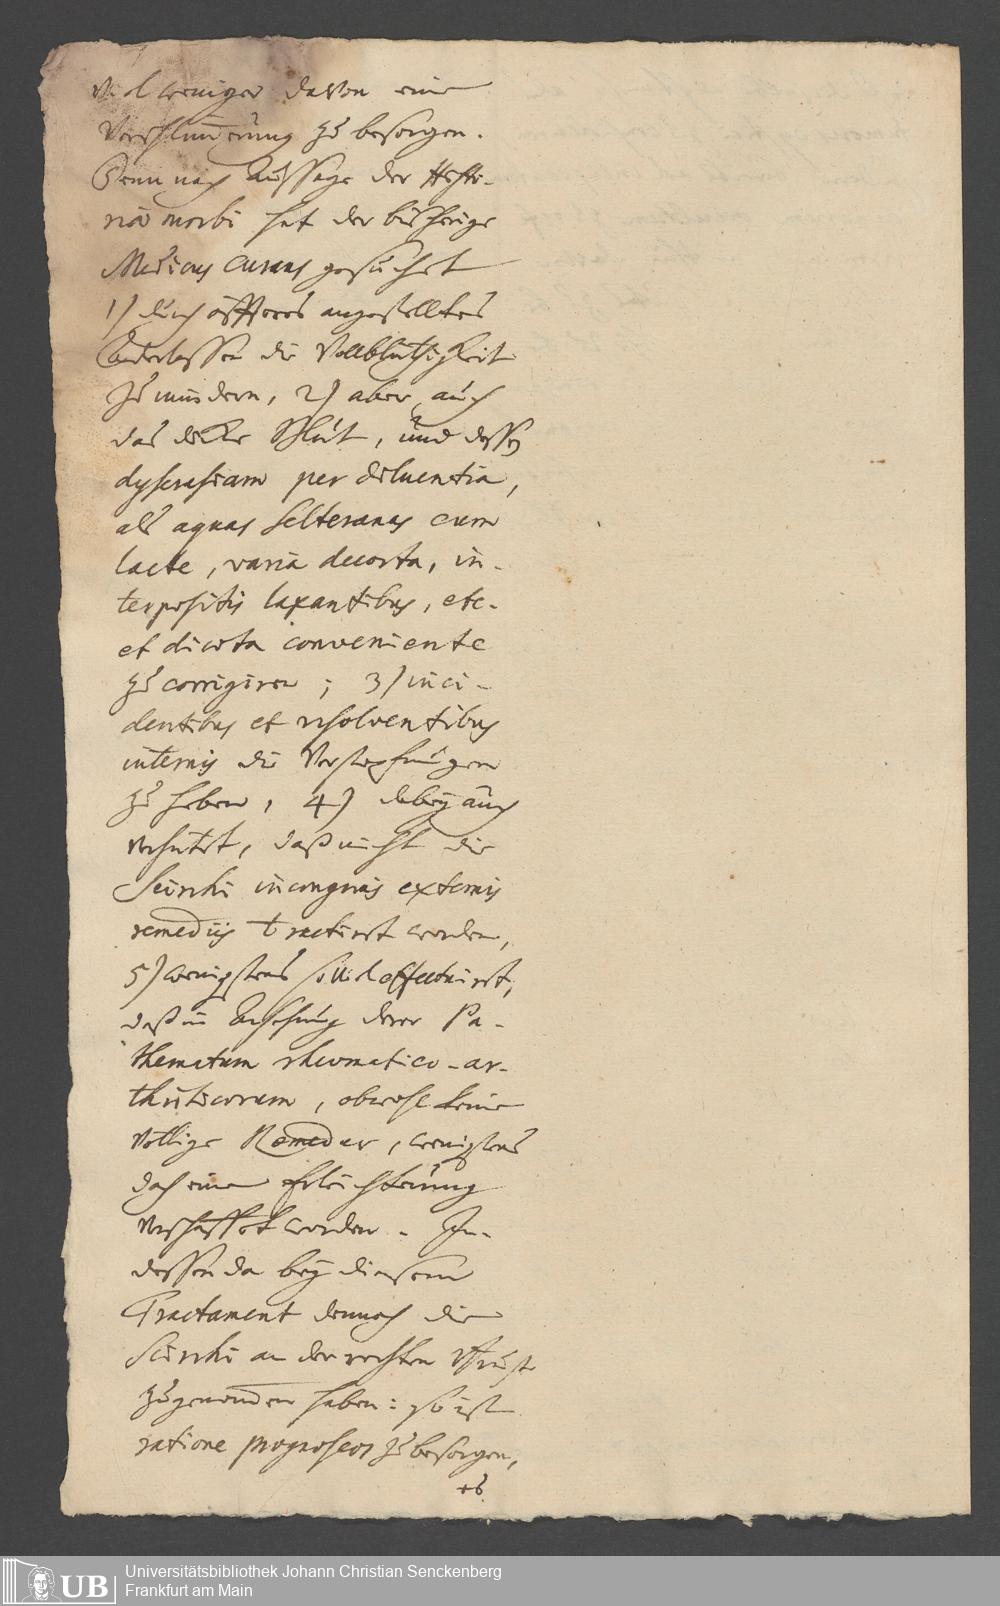 viel weniger davon eine
Verschlimmerung zu besorgen.
Denn nach Aussage der Histo-
ria morbi hat der bisherige
Medicus curans gesuchet
1) durch öffteres angestelltes
Aderlassen die Vollblütigkeit
zu mindern, 2) aber auch
das dicke Blut, und dessen
dyscrasiam per diluentia,
als aquas Selteranas cum
lacte, varia decocta, in-
terpositis laxantibus, etc.
et diaeta conveniente
zu corrigiren; 3) inci-
dentibus et resolventibus
internis die Verstopfungen
zu heben, 4) dabey auch
verhütet, daß nicht die
Scirrhi incongruis externis
remediis tractirt worden,
5) wenigstens so viel effectuirt,
daß in Ansehung derer Pa-
thematum rheumatico-ar-
thriticorum, obwohl keine
völlige Remedur, wenigstens
doch eine Erleichterung
verschaffet worden. In-
dessen da bey diesem
Tractament dennoch die
Scirrhi an der rechten Brust
zugenommen haben: so ist
ratione prognoseos zu besorgen,
es
Universitätsbibliothek Johann Christian Senckenberg
Frankfurt am Main
UB